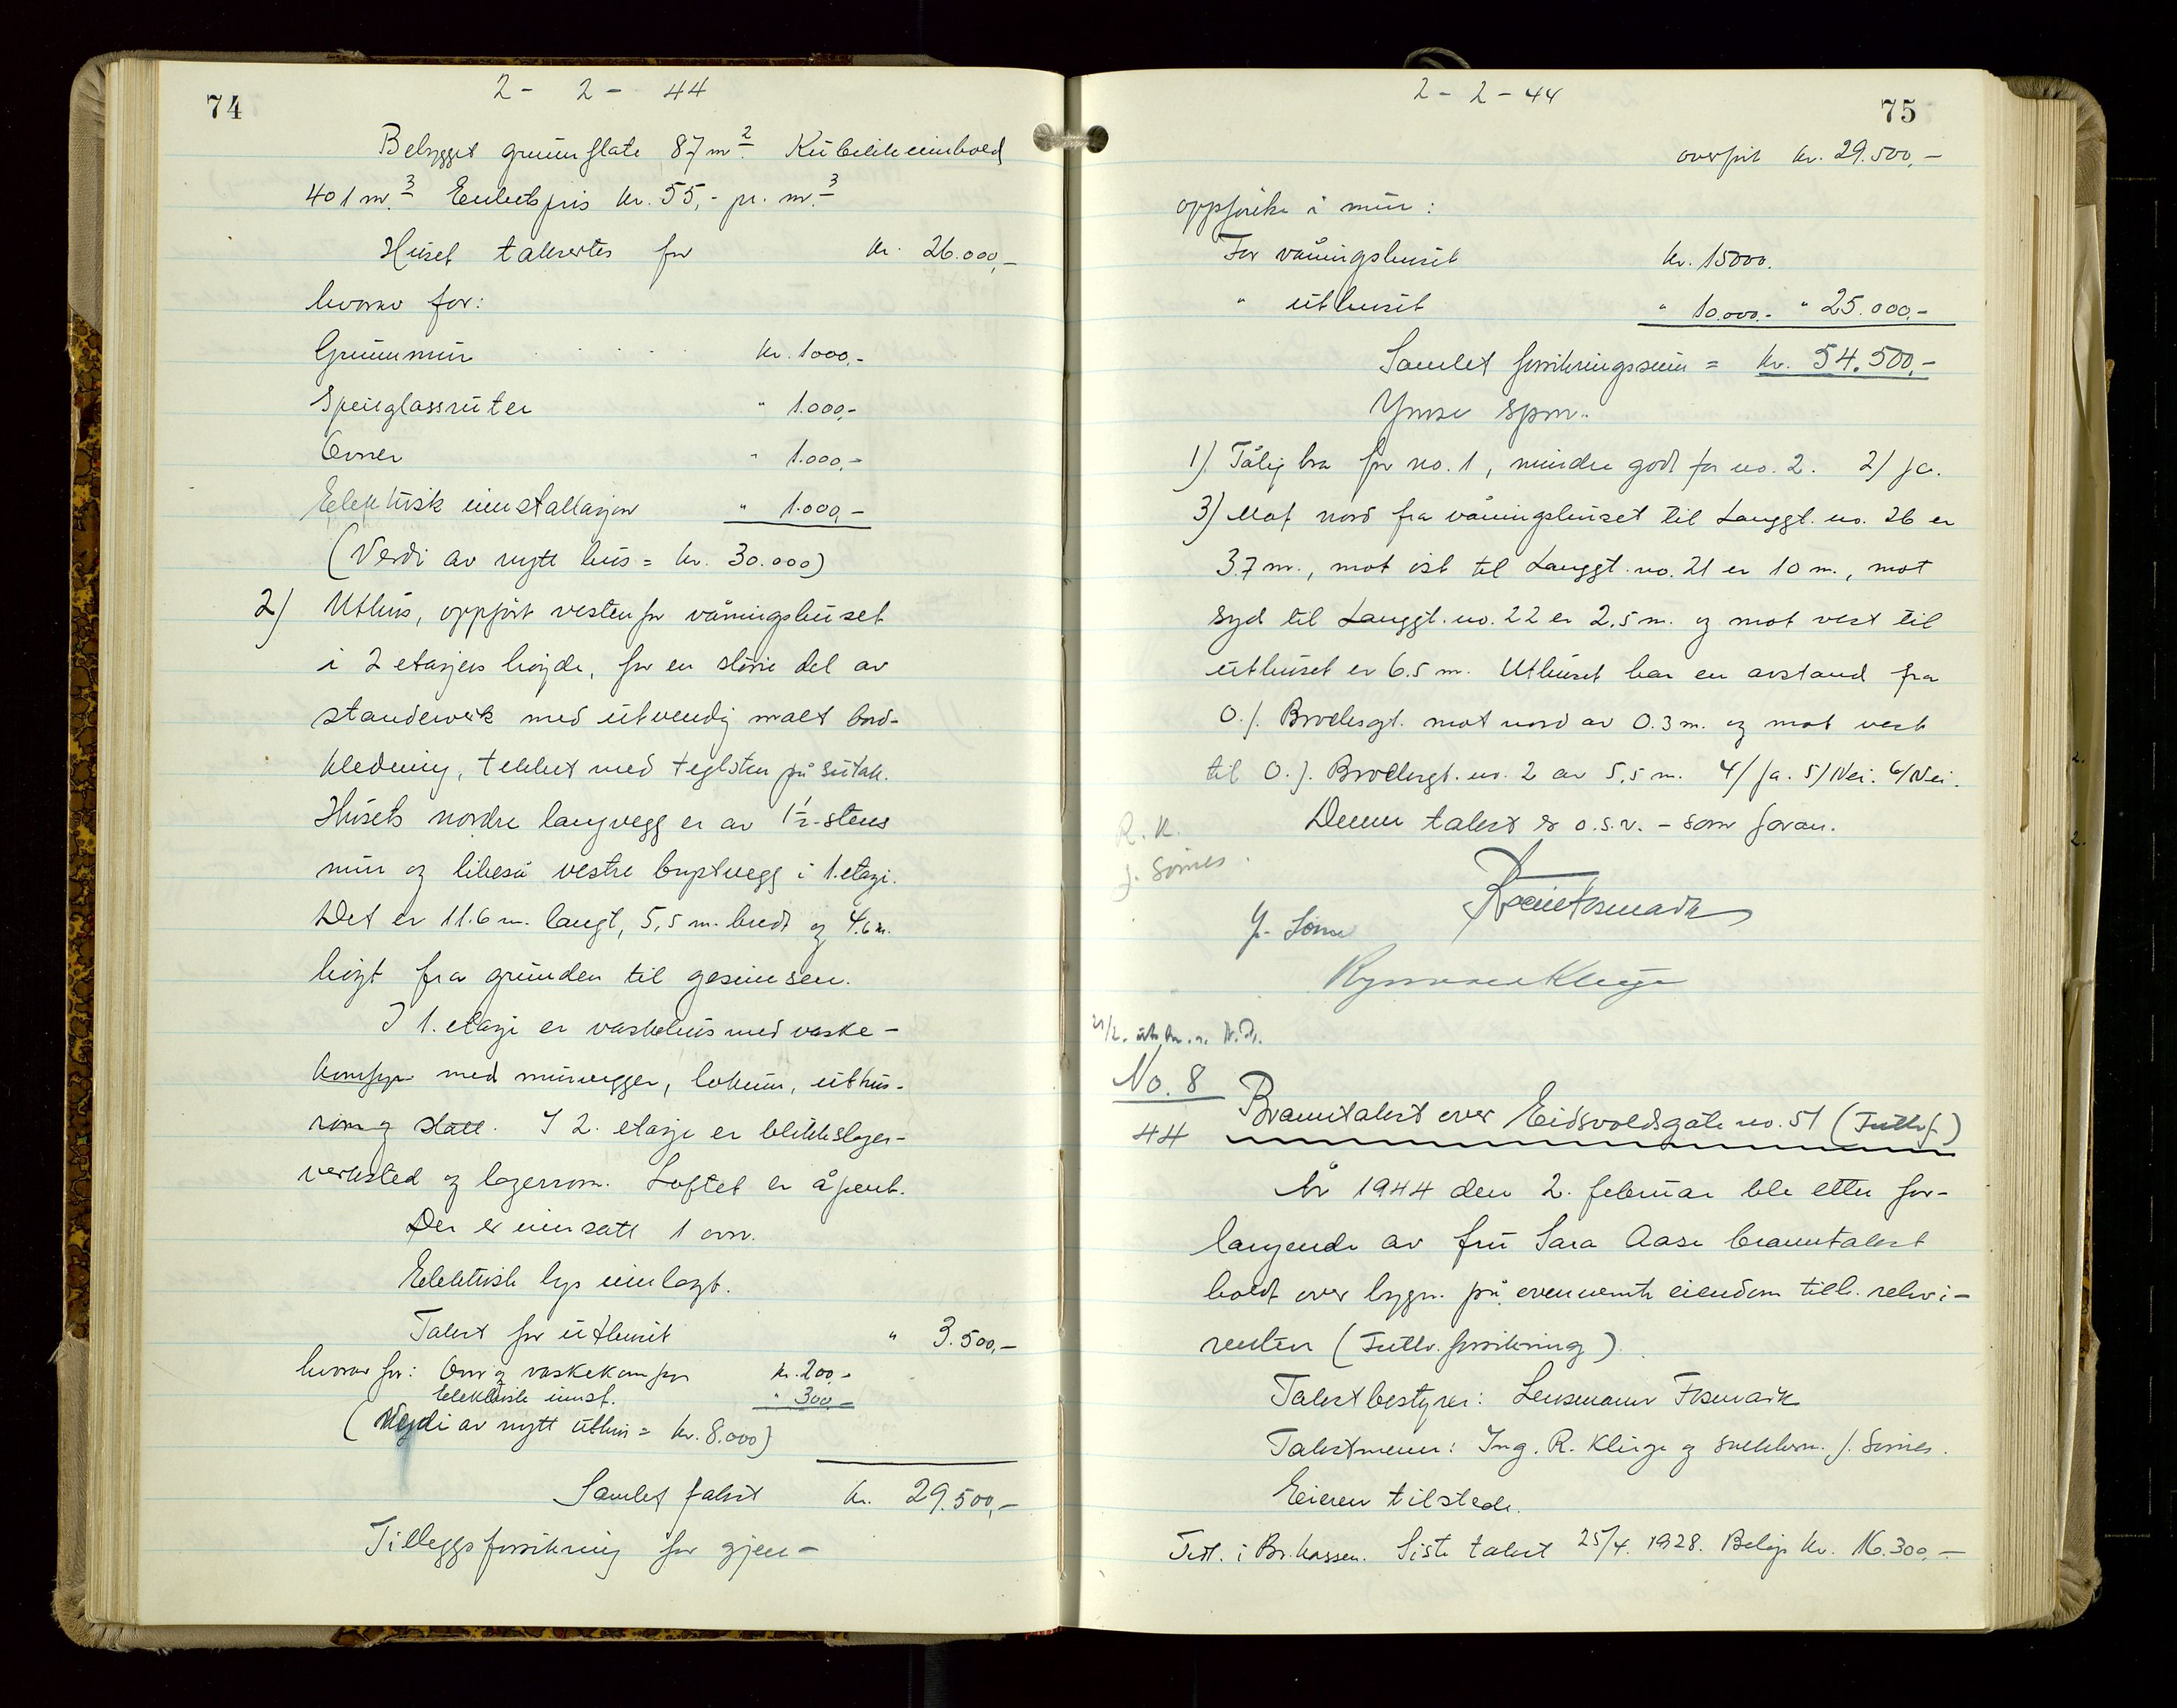 74
2 - 2 - 44
Bebygget grunnflate 87 m². Kubikkinnhold
401 m.³ Enhetspris kr. 55,- pr. m.³
Huset takseres for kr. 26.000,-
hvorav for:
Grunnmur . . . . kr. 1000,-
Speilglassruter " 1.000,-
Ovner " 1.000,-
Elektrisk innstallasjon " 1.000,-
(Verdi av nytt hus = kr. 30.000)
2) Uthus, oppført vestenfor våningshuset
i 2 etasjers höyde, for en större del av
standerverk med utvendig malt bord-
kledning, tekket med teglsten på sutak.
Husets nordre langvegg er av 1½-stens
mur og likeså vestre kryptvegg i 1. etasje.
Det er 11.6 m. langt, 5,5 m. bredt og 4.6 m.
höyt fra grunden til gesimsen.
I 1. etasje er vaskehus med vaske-
kompyr med murvegger, lokum, uthus-
rom og stall. I 2. etasje er blikkslager-
verksted og lagerrom. Loftet er åpent.
Der er innsatt 1 ovn.
Elektrisk lys innlagt.
Takst for uthuset " 3.500,-
hvorav for: Ovn og vaskekompyr kr. 200,-
Elektriske innst. " 300,-
(Verdi av nytt uthus = kr. 8.000)
Samlet takst kr. 29.500,-
Tilleggsforsikring for gjen-
75
2 - 2 - 44
overfört kr. 29.500,-
oppförelse i mur:
For våningshuset kr. 15000.
" uthuset " 10.000.- " 25.000,-
Samlet forsikringssum = kr. 54.500,-
Ymse spm..
1) Tålig bra for no. 1, mindre godt for no. 2. 2) Ja.
3) Mot nord fra våningshuset til Langgt. no. 26 er
3.7 m., mot öst til Langgt. no. 21 er 10 m., mot
syd til Langgt. no. 22 er 2.5 m. og mot vest til
uthuset er 6.5 m. Uthuset har en avstand fra
O. J. Brochsgt. mot nord av 0.3 m. og mot vest
til O. J. Brochsgt. no. 2 av 5,5 m. 4/ Ja. 5/ Nei. 6/ Nei.
Denne takst er o.s.v. - som foran.
R. K.
J. Sömes.
No. 8
44
Branntakst over Eidsvoldsgate no. 51 (Frittl.)
År 1944 den 2. februar ble etter for-
langende av fru Sara Aase branntakst
holdt over bygn. på ovennevnte eiendom tilh. rekvi-
renten (Frittl. forsikring)
Takstbestyrer: Lensmann Fosmark
Takstmenn: Ing. R. Kluge og snekkerm. J. Sömes.
Eieren tilstede.
i Br. kassen. Siste takst 25/4. 1928. Belöp kr. 16.300,-